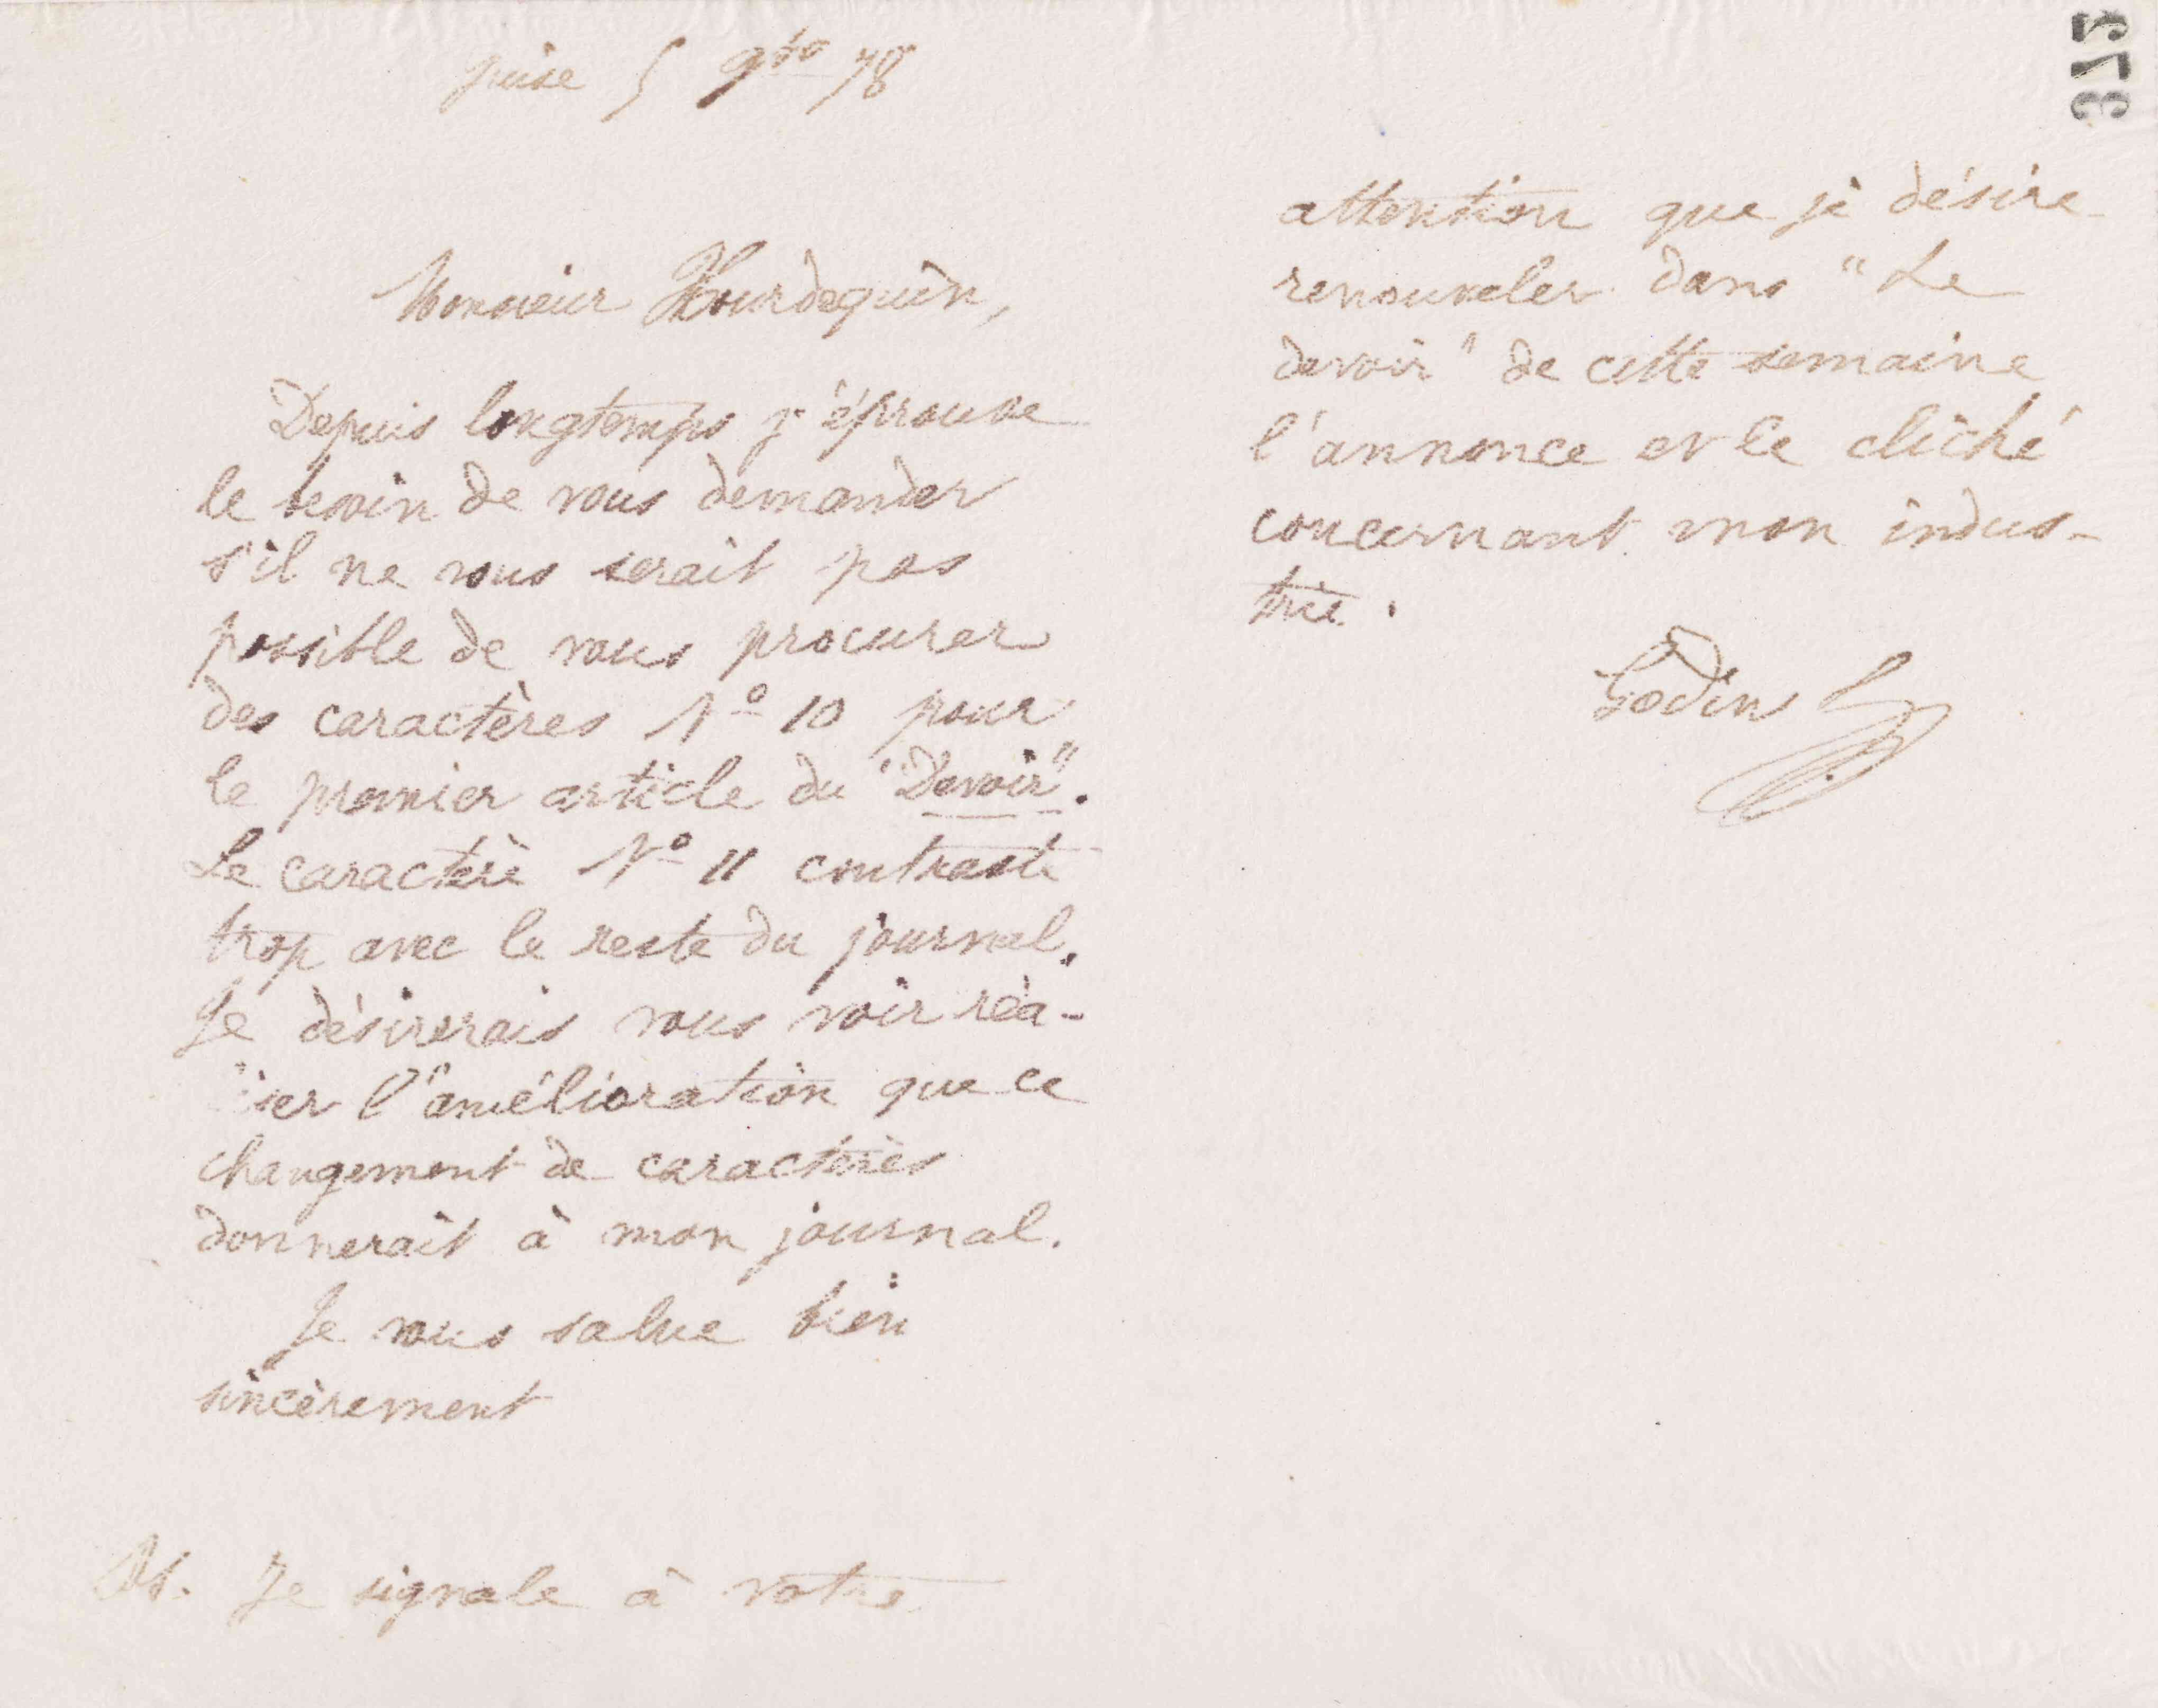 Guise 5 9bre 78
Monsieur Hourdequin,
Depuis longtemps j'éprouve
le besoin de vous demander
s'il ne vous serait pas
possible de vous procurer
des caractères No 10 pour
le premier article du "Devoir".
Le caractère No 11 contraste
trop avec le reste du journal.
Je désirerais vous voir réa-
liser l'amélioration que ce
changement de caractères
donnerait à mon journal.
Je vous salue bien
sincèrement
Ps. Je signale à votre
325
attention que je désire
renouveler dans "Le
devoir" de cette semaine
l'annonce et le cliché
concernant mon indus-
trie.
Godin